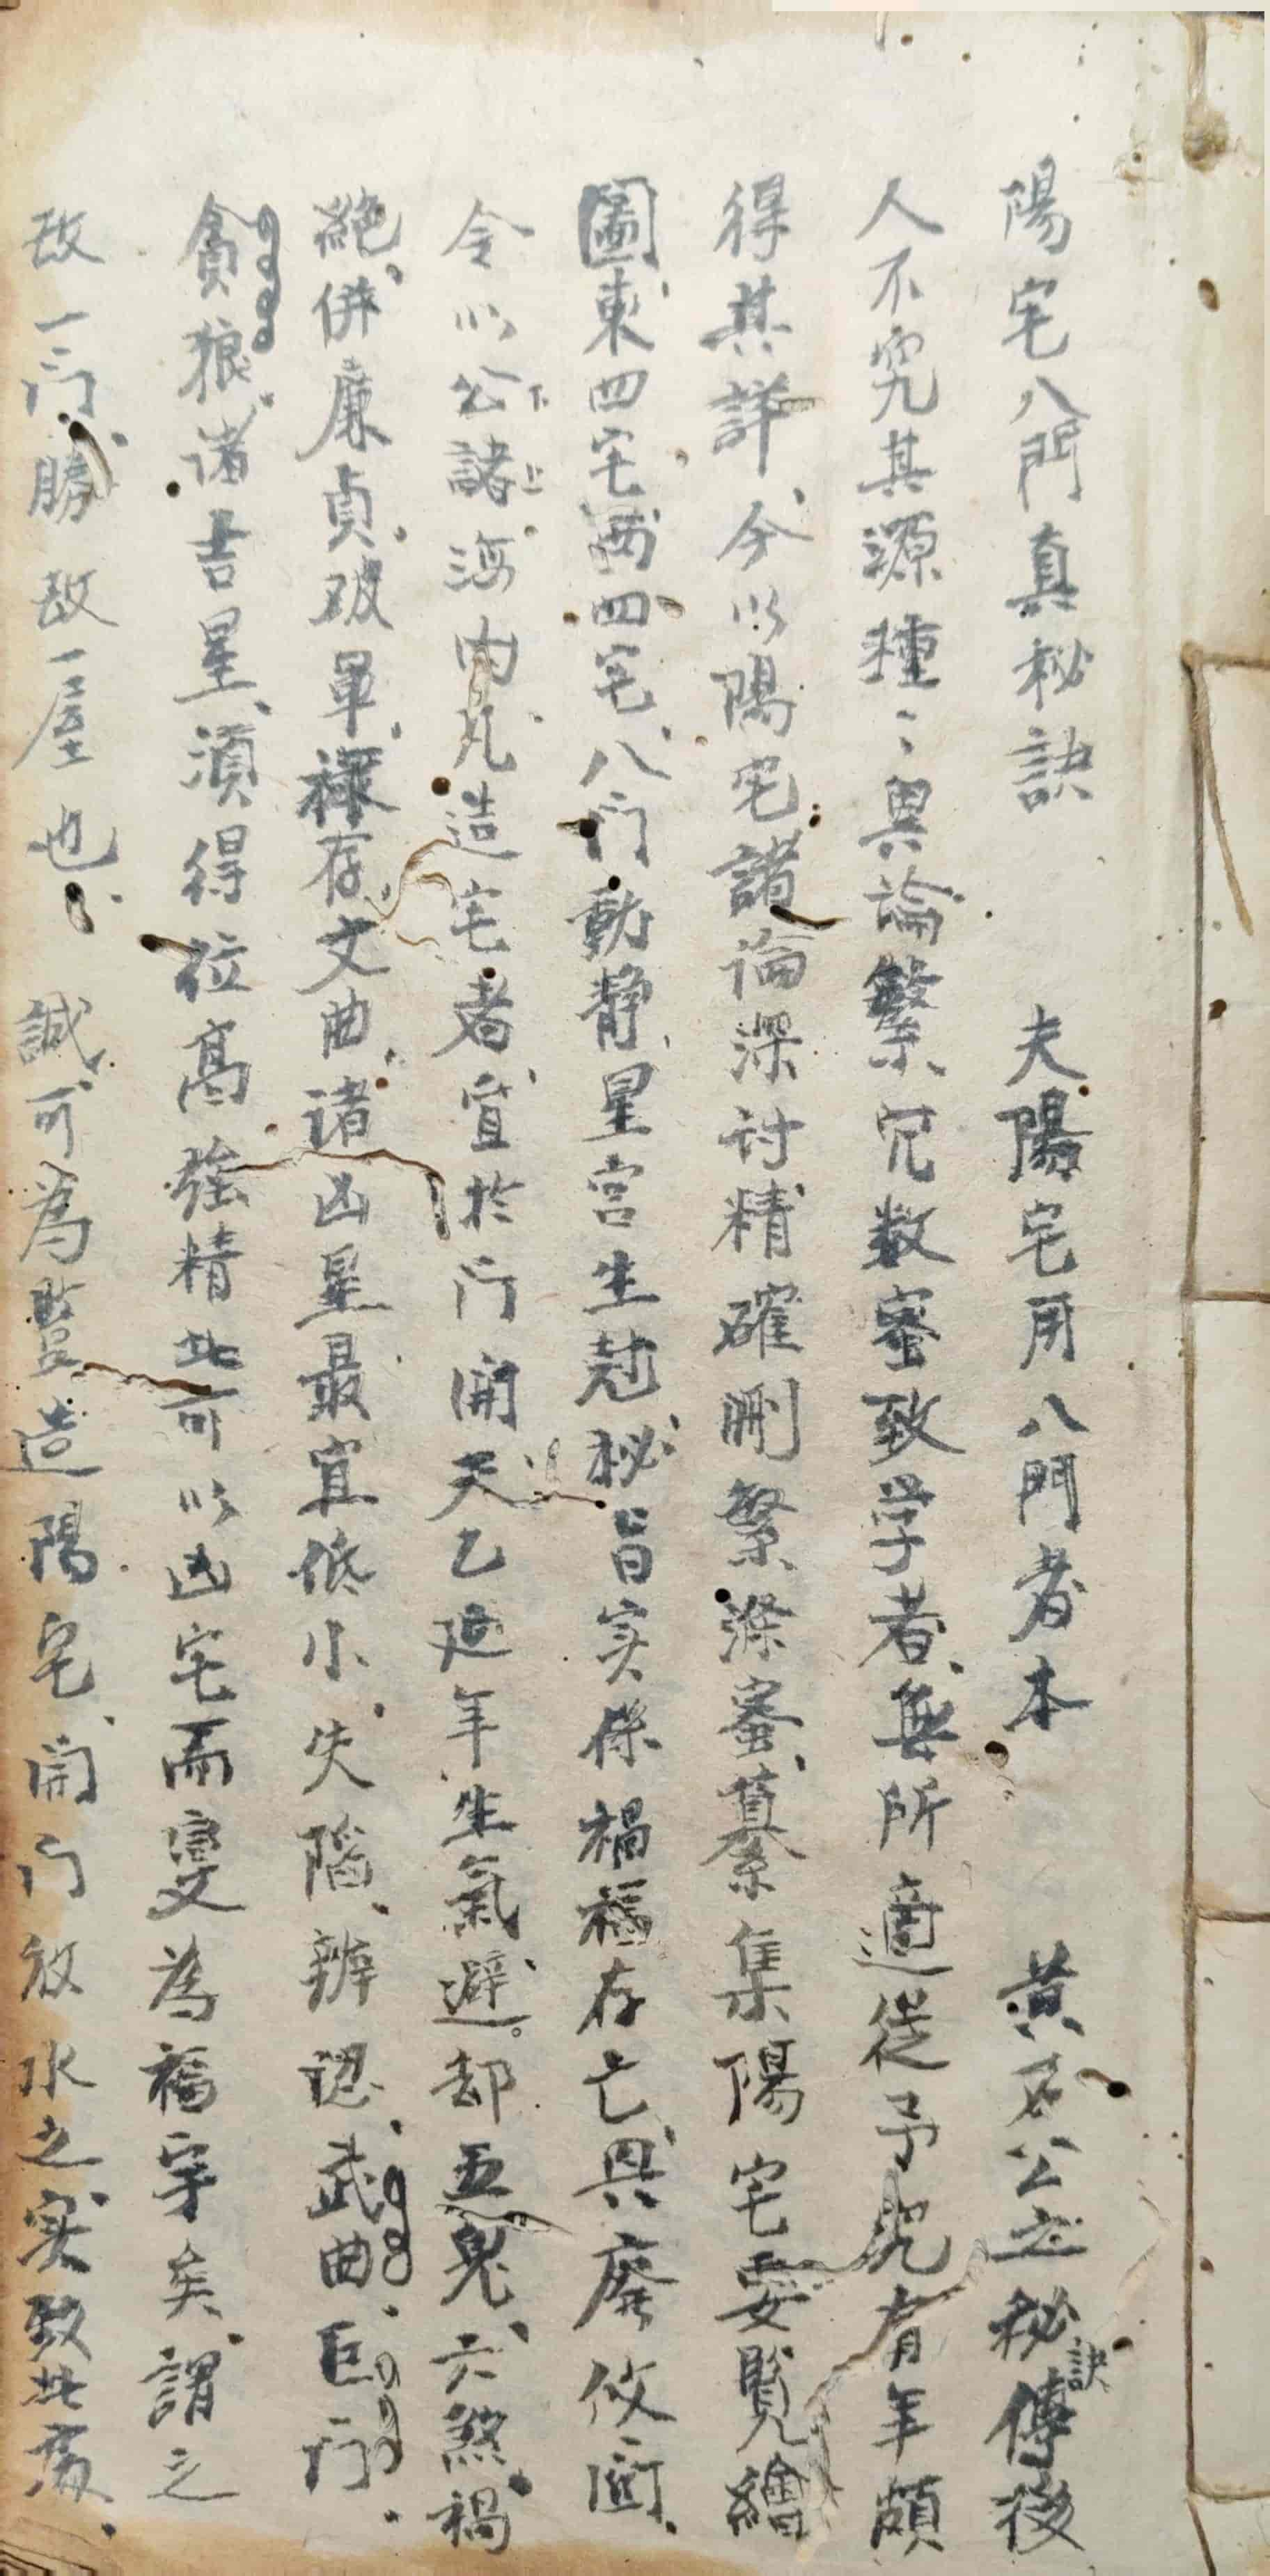 陽宅八門真秘訣 夫陽宅用八門者本 黄石公之秘訣傳後
人不究其源種々異論繁冗数蜜致学者無所適從予究有年頗
得其詳今以陽宅諸論深討精確刪繁滌蜜纂集陽宅要覧繪
圖東四宅西四宅八门動静星宫生尅秘旨实係禍福存亡興廢攸関
令以公諸海内凡造宅者宜於门開天乙延年生氣避却五鬼六煞禍
絕併廉貞破軍禄存文曲诸凶星最宜低小失陷辨認武曲巨门
貪狼诸吉星須得位高強精此可以凶宅而变為福宇矣謂之
改一门勝改一屋也 誠可為竪造陽宅開门放水之实致此爲